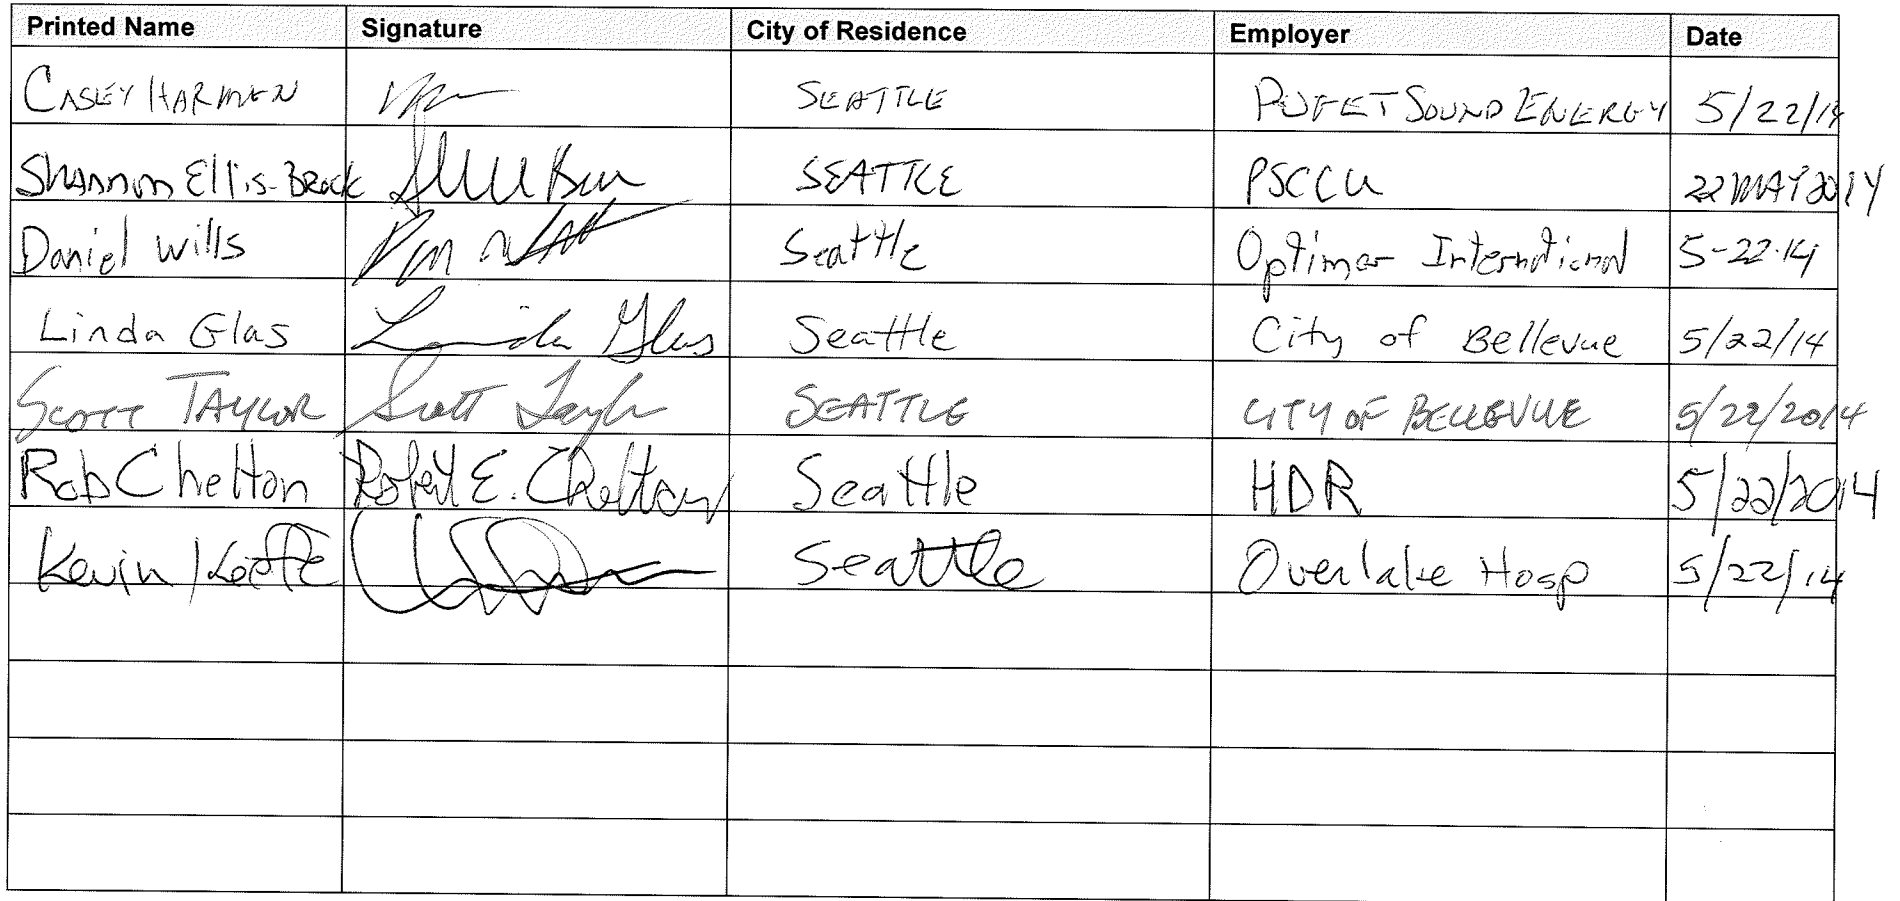 Printed Name Signature City of Residence Employer Date
CASEY HARMEN SEATTLE PUGET SOUND ENERGY 5/22/14
Shannon Ellis-Brock SEATTLE PSCCU 22 MAY 2014
Daniel Wills Seattle Optimar International 5-22-14
Linda Glas Linda Glas Seattle City of Bellevue 5/22/14
SCOTT TAYLOR Scott Taylor SEATTLE CITY OF BELLEVUE 5/22/2014
Rob Chelton Robert E. Chelton Seattle HDR 5/22/2014
Kevin Keefe Seattle Overlake Hosp 5/22/14